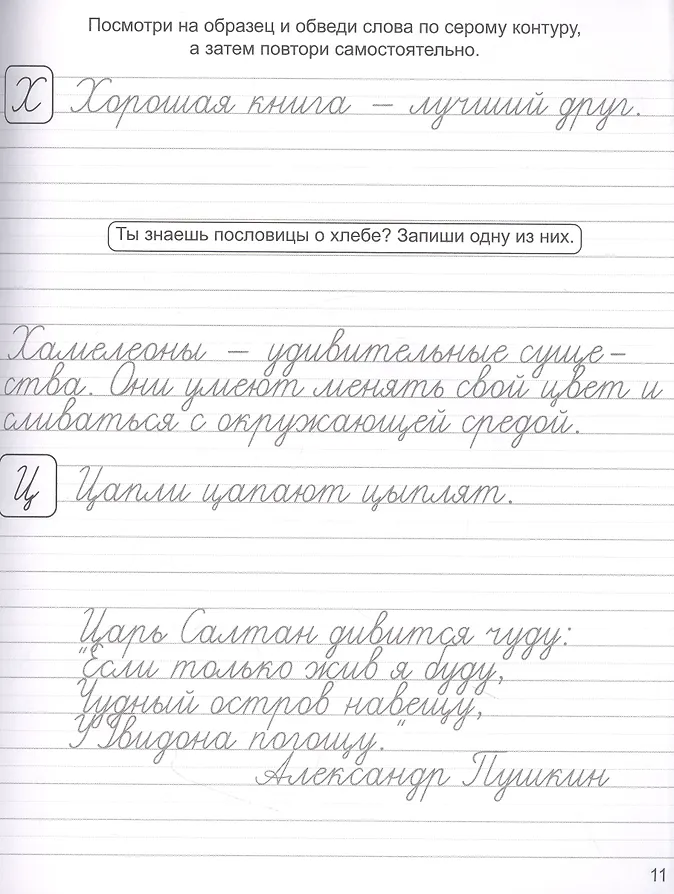 Посмотри на образец и обведи слова по серому контуру,
а затем повтори самостоятельно.
Х Хорошая книга – лучший друг.
Ты знаешь пословицы о хлебе? Запиши одну из них.
Хамелеоны – удивительные суще–
ства. Они умеют менять свой цвет и
сливаться с окружающей средой.
Ц Цапли цапают цыплят.
Царь Салтан дивится чуду:
"Если только жив я буду,
Чудный остров навещу,
У Гвидона погощу."
Александр Пушкин
11